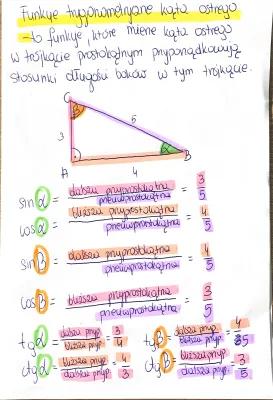 Funkcje trygonometryczne kąta ostrego
- to funkcje, które mierze kąta ostrego
w trójkącie prostokątnym przyporządkowują
stosunki długości boków w tym trójkącie.
C
3
5
A
4
B
sin α = dalsza przyprostokątna / przeciwprostokątna = 3/5
cos α = bliższa przyprostokątna / przeciwprostokątna = 4/5
sin β = dalsza przyprostokątna / przeciwprostokątna = 4/5
cos β = bliższa przyprostokątna / przeciwprostokątna = 3/5
tg α = dalsza przyp. / bliższa przyp. = 3/4
tg β = dalsza przyp. / bliższa przyp. = 4
ctg α = bliższa przyp. / dalsza przyp. = 4/3
ctg β = bliższa przyp. / dalsza przyp. = 3/5